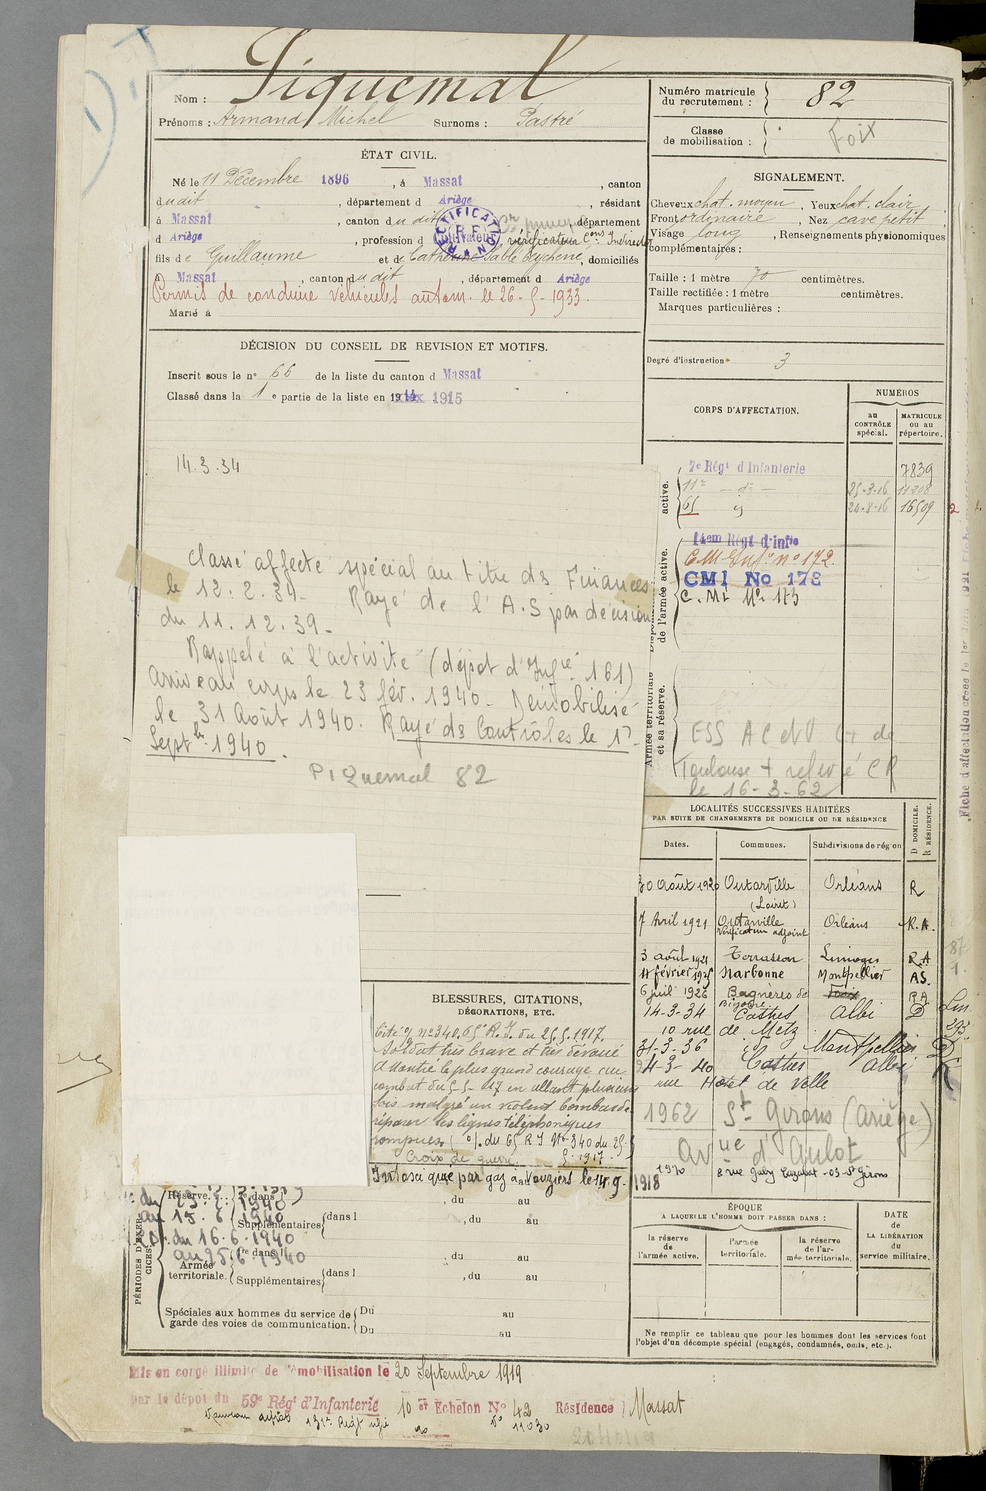 Nom : Piquemal
Prénoms : Armand Michel Surnoms : Pastré
Numéro matricule du recrutement : 82
Classe de mobilisation : Foix
ÉTAT CIVIL.
Né le 11 Décembre 1896, à Massat, canton
dudit, département d Ariège, résidant
à Massat, canton dudit, département
d Ariège, profession d Cultivateur
RECTIFICATION R.F.
fils de Guillaume et de Catherine, domiciliés
à Massat, canton dudit, département d Ariège
Permis de conduire véhicules autom. le 26-5-1933.
Marié à
SIGNALEMENT.
Cheveux chat. moyen, Yeux chat. clair
Front ordinaire, Nez cave petit,
Visage long, Renseignements physionomiques
complémentaires :
Taille : 1 mètre 70 centimètres.
Taille rectifiée : 1 mètre centimètres.
Marques particulières :
Degré d'instruction 3
DÉCISION DU CONSEIL DE REVISION ET MOTIFS.
Inscrit sous le n° 66 de la liste du canton d Massat
Classé dans la 1e partie de la liste en 1915
CORPS D'AFFECTATION.
NUMÉROS
au CONTRÔLE spécial.
MATRICULE ou au répertoire.
active.
7e Régt d'Infanterie 7839
11e — do — 25-3-16 11308
65 24-8-16 16509
de l'armée active.
14em Régt d'Infie
C.M. Infie n° 172
CMI No 178
C.M. N° 173
Armée territoriale et sa réserve.
Toulouse + relevé CR
le 16-3-62
14.3.34
Classé affecté spécial au titre ds Finances
le 12.2.34. Rayé de l'A.S par décision
du 11.12.39.
Rappelé à l'activité (dépôt d'Infie 161)
Arrivé au corps le 23 fév. 1940. Démobilisé
le 31 Août 1940. Rayé ds Contrôles le 1r
Septbr 1940.
Piquemal 82
LOCALITÉS SUCCESSIVES HABITÉES
PAR SUITE DE CHANGEMENTS DE DOMICILE OU DE RÉSIDENCE
D DOMICILE.
R RÉSIDENCE.
Dates. Communes. Subdivisions de région
30 Août 1920 Outarville Orléans R
(Loiret)
7 Avril 1921 Outarville Orléans R.A.
Vérificateur adjoint
3 août 1921 Terrasson Limoges R.A
11 février 1925 Narbonne Montpellier AS.
6 juil 1926 Bagnères de Bigorre Foix R.A
14-3-34 Castres Albi D
10 rue de Metz
31-3-36 Montpellier D
24-3-40 Castres Albi
rue Hôtel de Ville
1962 St Girons (Ariège)
Avue d'Aulot
1970 8 rue Gaby Cazabat - 09 - St Girons
BLESSURES, CITATIONS,
DÉCORATIONS, ETC.
Cité O/ n° 340. 65e R.I. du 25.5.1917.
Soldat très brave et très dévoué
a montré le plus grand courage au
combat du 5-5-17 en allant plusieurs
fois malgré un violent bombardt
réparer les lignes téléphoniques
rompues. (O/. du 65 R I N° 340 du 25-5-1917.
Croix de guerre
Intoxiqué par gaz à Vouziers le 14.9.1918
PÉRIODES D'EXERCICES
Réserve. 2e dans l
du 15.6.1940
Supplémentaires dans l, du au
du 16-6-1940
au 25.6.1940
1re dans l, du au
Armée territoriale. Supplémentaires dans l, du au
Spéciales aux hommes du service de garde des voies de communication. Du au
Du au
ÉPOQUE
A LAQUELLE L'HOMME DOIT PASSER DANS :
la réserve de l'armée active. l'armée territoriale. la réserve de l'armée territoriale.
DATE DE LA LIBÉRATION du service militaire.
Ne remplir ce tableau que pour les hommes dont les services font
l'objet d'un décompte spécial (engagés, condamnés, omis, etc.).
Mis en congé illimité de démobilisation le 20 Septembre 1919
par le dépôt du 59e Régt d'Infanterie 10e Echelon N° 42 Résidence Massat
N° 11030